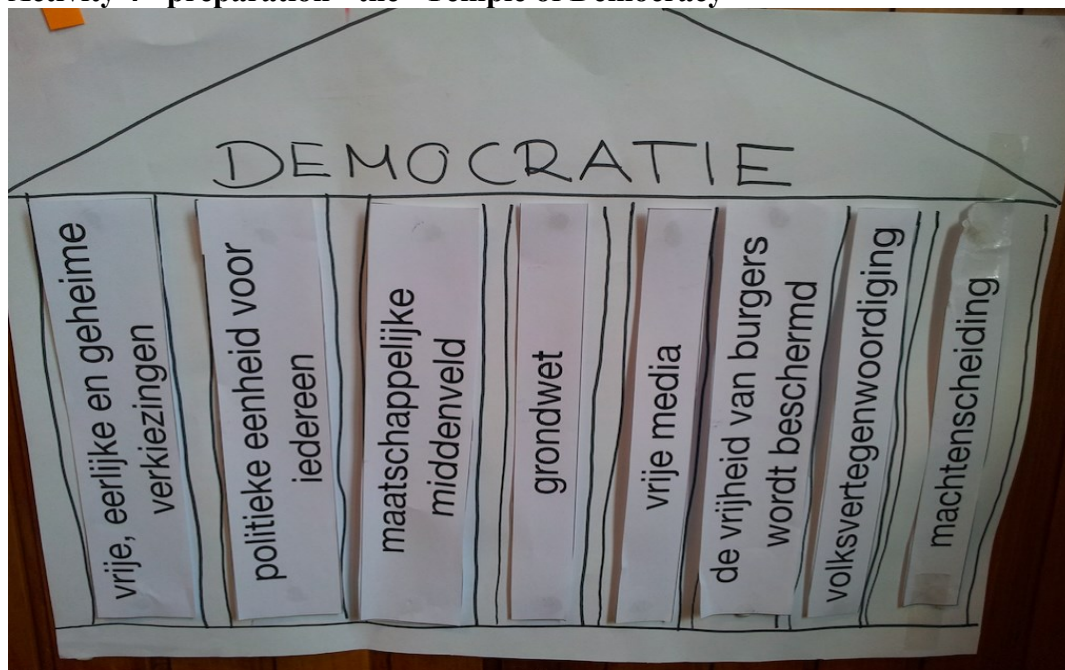 Activity 4 - preparation - the "Temple of Democracy"
DEMOCRATIE
vrije, eerlijke en geheime
verkiezingen
politieke eenheid voor
iedereen
maatschappelijke
middenveld
grondwet
vrije media
de vrijheid van burgers
wordt beschermd
volksvertegenwoordiging
machtenscheiding